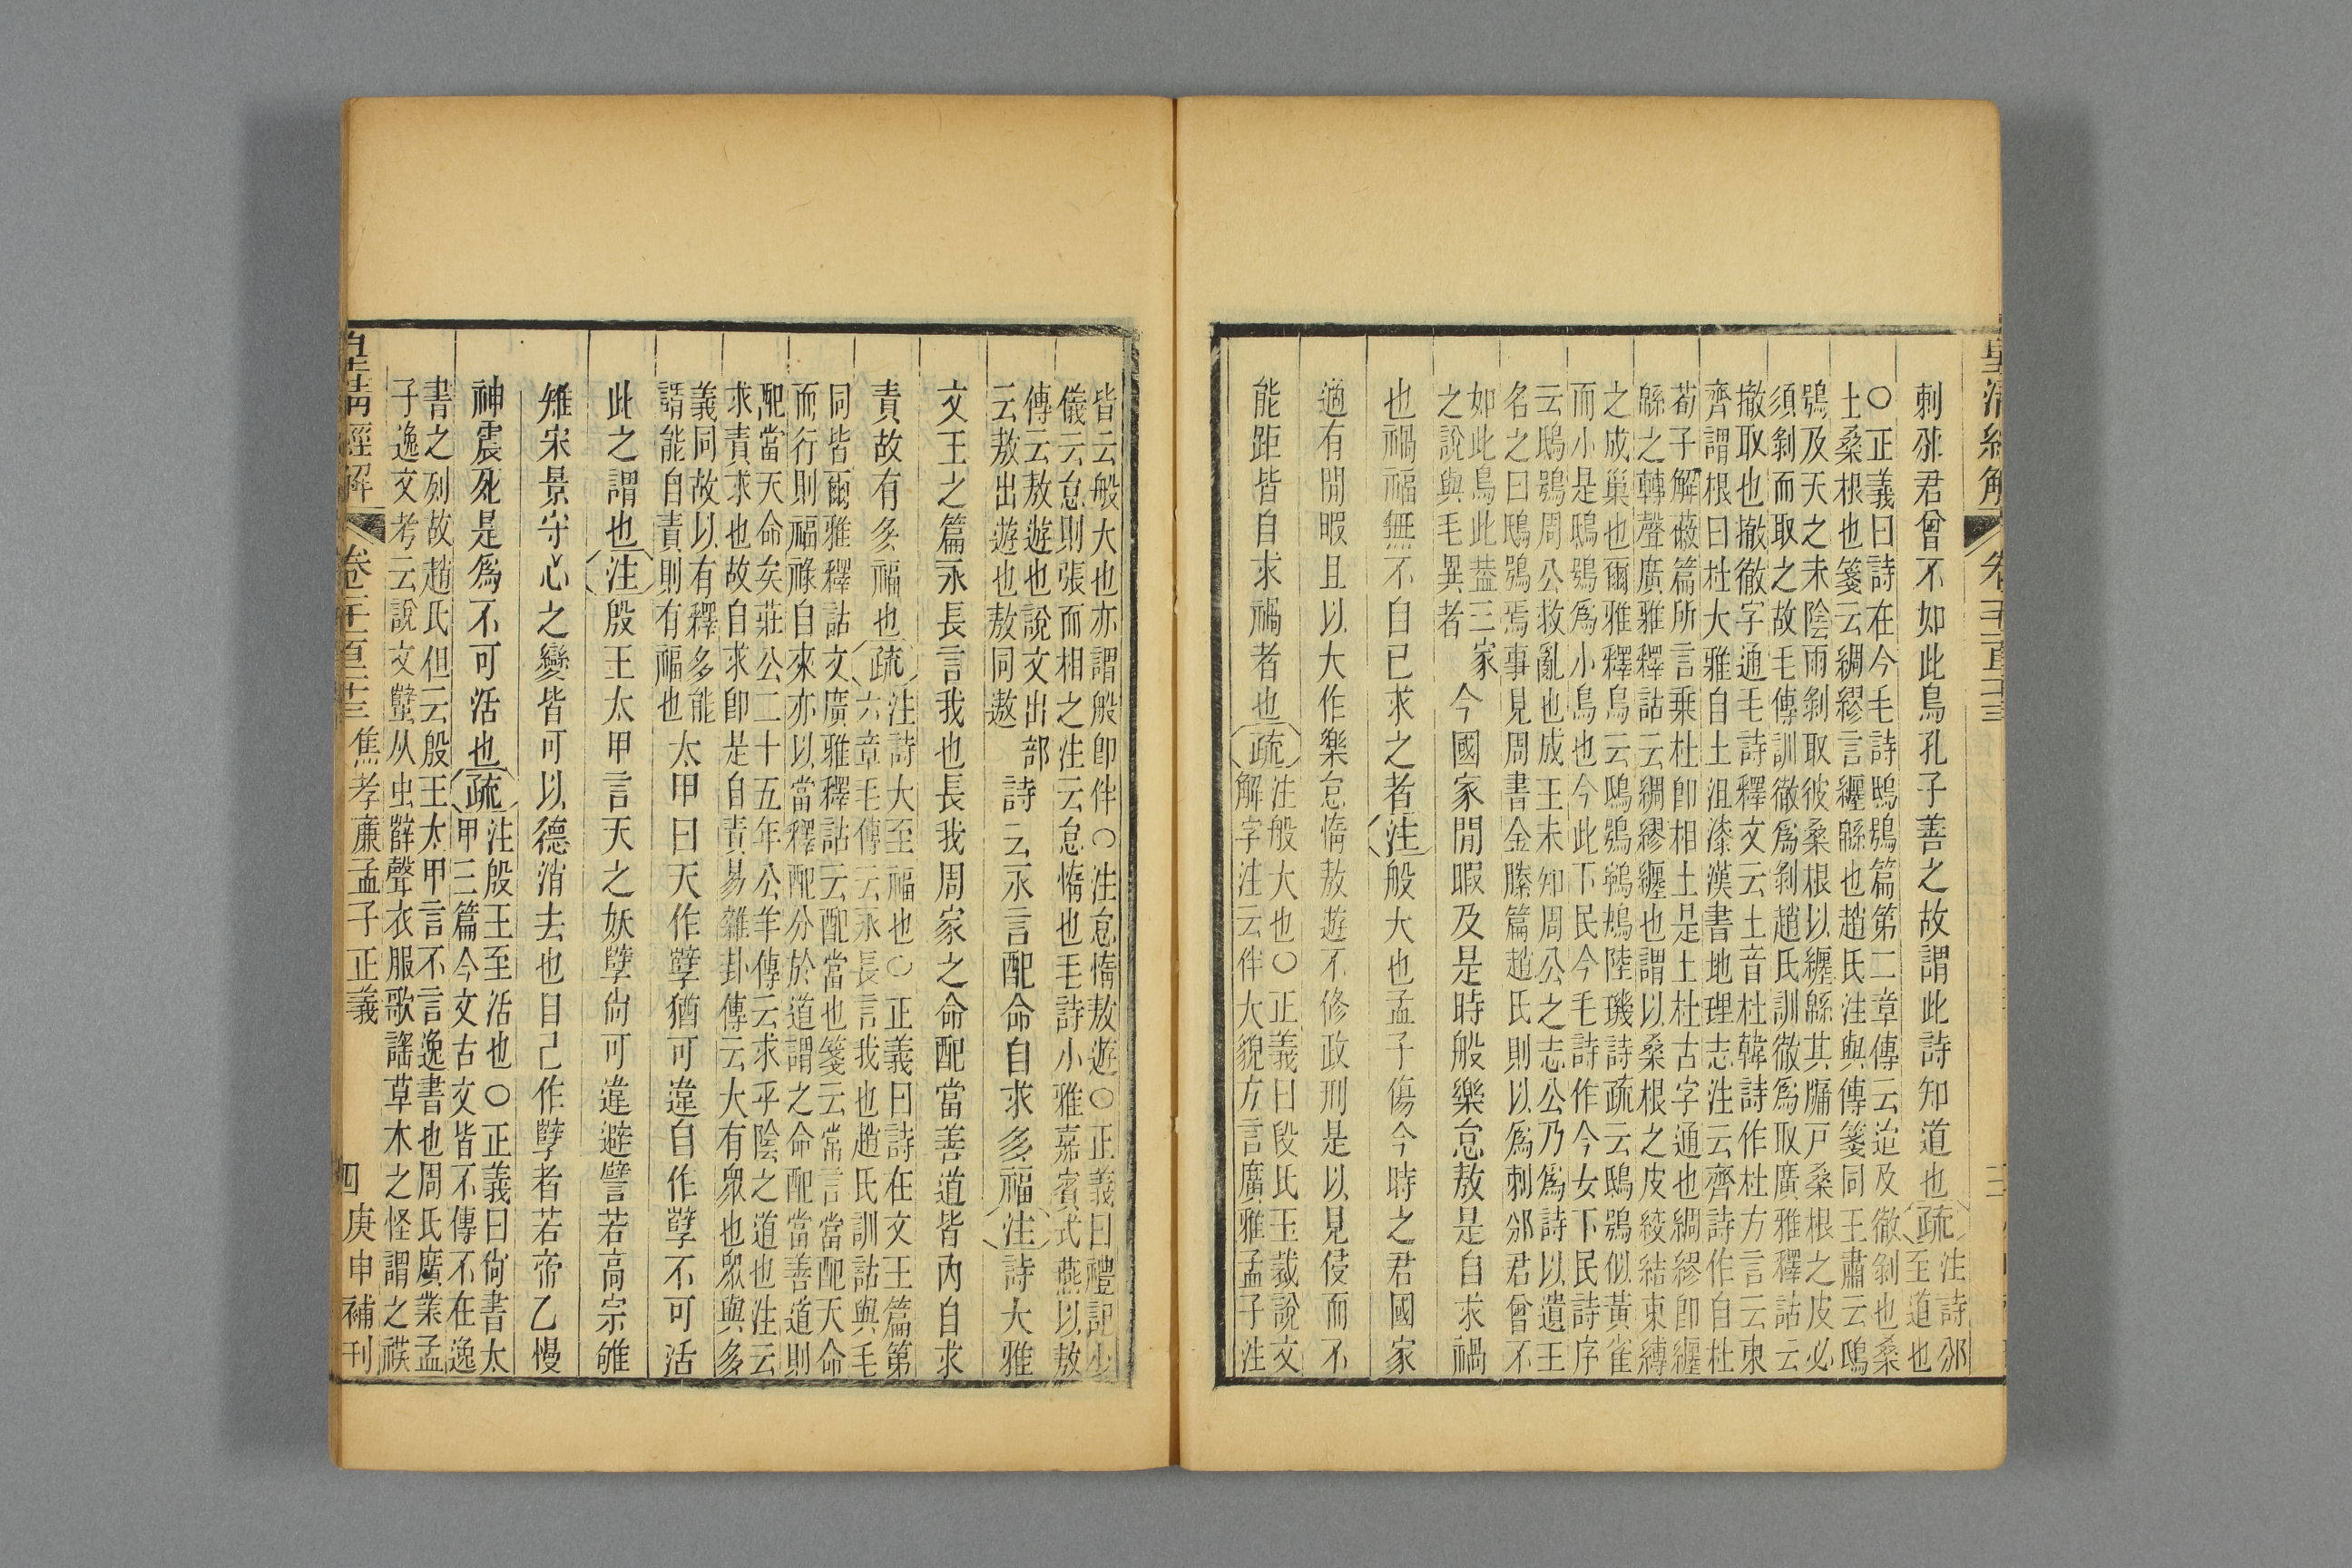 刺邠君曾不如此鳥孔子善之故謂此詩知道也疏
注詩邠
至道也
○正義曰詩在今毛詩鴟鴞篇第二章傳云迨及徹剝也桑
土桑根也箋云綢繆言纏緜也趙氏注與傳箋同王肅云鴟
鴞及天之未陰雨剝取彼桑根以纏緜其牖戸桑根之皮必
須剝而取之故毛傳訓徹爲剝趙氏訓徹爲取廣雅釋詁云
撤取也撤徹字通毛詩釋文云土音杜韓詩作杜方言云東
齊謂根曰杜大雅自土沮漆漢書地理志注云齊詩作自杜
荀子解蔽篇所言乗杜卽相土是土杜古字通也綢繆卽纏
緜之轉聲廣雅釋詁云綢繆纏也謂以桑根之皮絞結束縛
之成巢也爾雅釋鳥云鴟鴞鸋鴂陸璣詩疏云鴟鴞似黃雀
而小是鴟鴞爲小鳥也今此下民今毛詩作今女下民詩序
云鴟鴞周公救亂也成王未知周公之志公乃爲詩以遺王
名之曰鴟鴞焉事見周書金縢篇趙氏則以爲刺邠君曾不
如此鳥此葢三家
之說與毛異者
今國家閒暇及是時般樂怠敖是自求禍
也禍福無不自己求之者注般大也孟子傷今時之君國家
適有閒暇且以大作樂怠惰敖遊不修政刑是以見侵而不
能距皆自求禍者也疏
注般大也○正義曰段氏玉裁說文
解字注云伴大貌方言廣雅孟子注
皆云般大也亦謂般卽伴○注怠惰敖遊○正義曰禮記少
儀云怠則張而相之注云怠惰也毛詩小雅嘉賓式燕以敖
傳云敖遊也說文出部
云敖出遊也敖同遨
詩云永言配命自求多福注詩大雅
文王之篇永長言我也長我周家之命配當善道皆內自求
責故有多福也疏
注詩大至福也○正義曰詩在文王篇第
六章毛傳云永長言我也趙氏訓詁與毛
同皆爾雅釋詁文廣雅釋詁云配當也箋云常言當配天命
而行則福祿自來亦以當釋配分於道謂之命配當善道則
配當天命矣莊公二十五年公羊傳云求乎陰之道也注云
求責求也故自求卽是自責易雜卦傳云大有衆也衆與多
義同故以有釋多能
請能自責則有福也
太甲曰天作孽猶可違自作孽不可活
此之謂也注殷王太甲言天之妖孽尙可違避譬若高宗雊
雉宋景守心之變皆可以德消去也自己作孽者若帝乙慢
神震死是爲不可活也疏
注殷王至活也○正義曰尙書太
甲三篇今文古文皆不傳不在逸
書之列故趙氏但云殷王太甲言不言逸書也周氏廣業孟
子逸文考云說文蠥从虫辥聲衣服歌謠草木之怪謂之䄏
皇清經解
卷一千一百二十三
焦孝廉孟子正義
四
庚申補刊